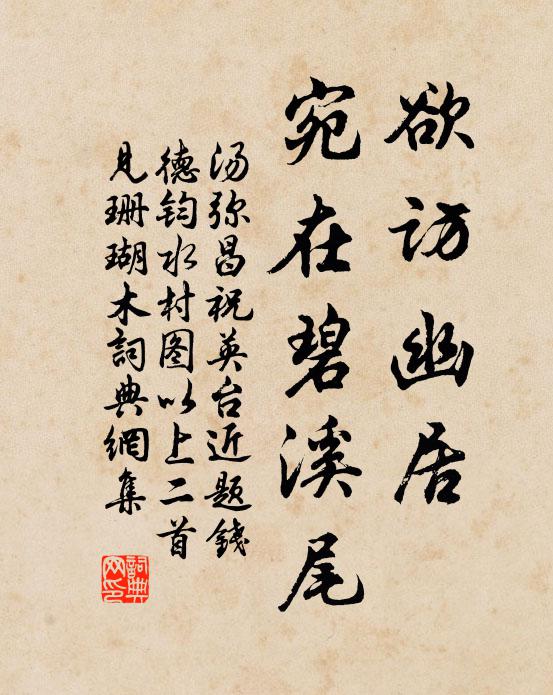 欲访幽居
宛在碧溪尾
汤弥昌祝英台近题錢
德钧水村图以上二首
见珊瑚木詞典網集
詞典
网印